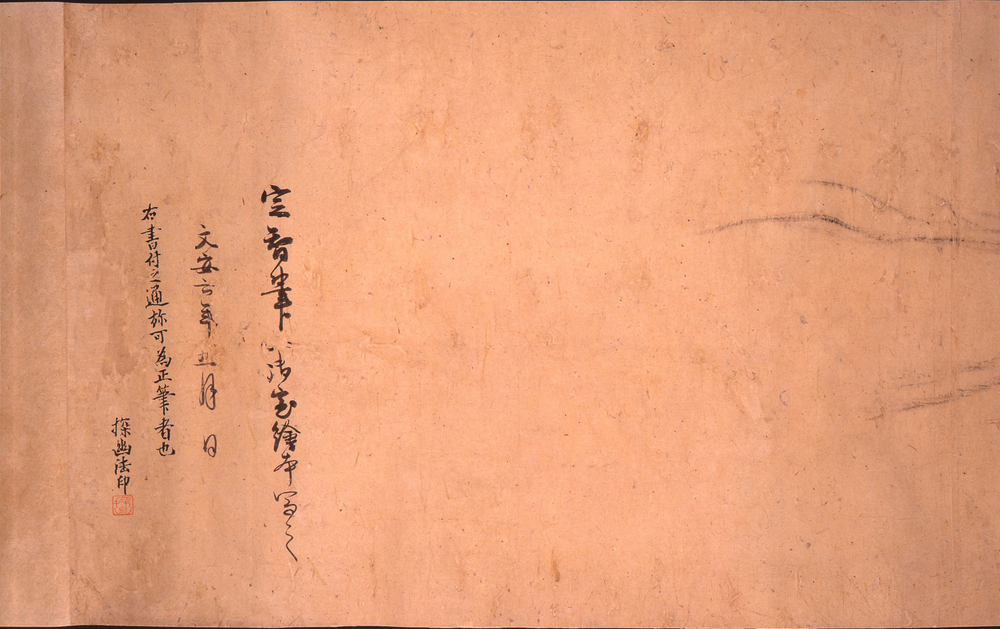 定智筆 繪本写之
文安六年五月 日
右書付之通弥可為正筆者也
探幽法印